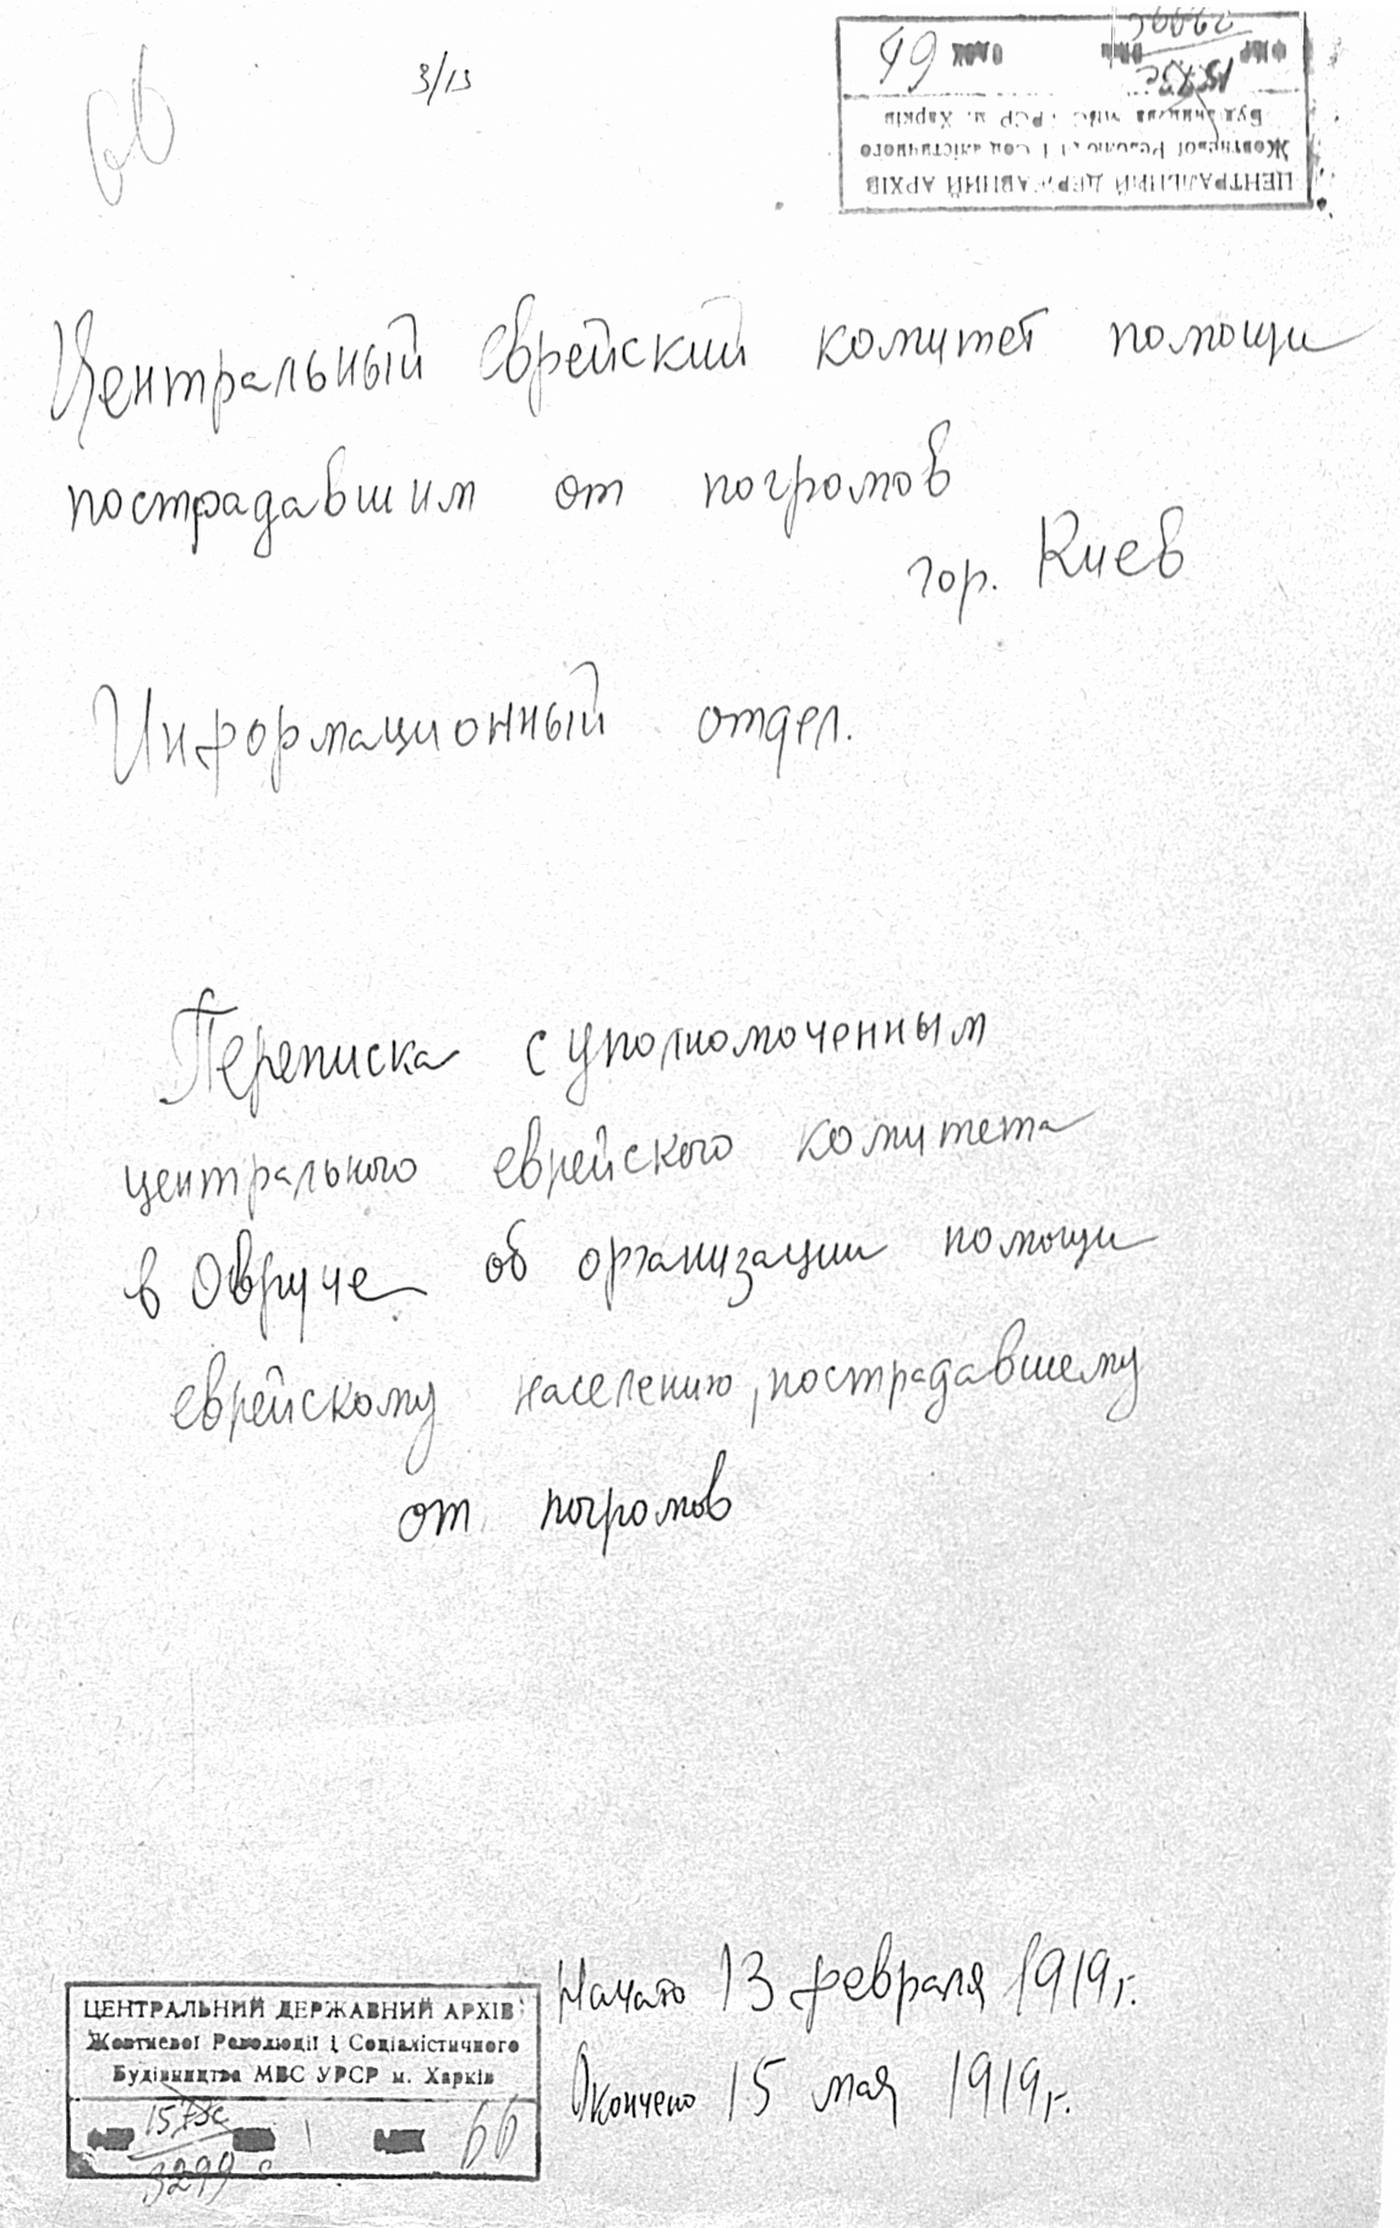 66
3/13
ЦЕНТРАЛЬНИЙ ДЕРЖАВНИЙ АРХІВ
Жовтневої Революції і Соціалістичного
Будівництва МВС УРСР м. Харків
Центральный еврейский комитет помощи
пострадавшим от погромов
гор. Киев
Информационный отдел.
Переписка с уполномоченным
центрального еврейского комитета
в Овруче об организации помощи
еврейскому населению, пострадавшему
от погромов
Начато 13 февраля 1919 г.
Окончено 15 мая 1919 г.
ЦЕНТРАЛЬНИЙ ДЕРЖАВНИЙ АРХІВ
Жовтневої Революції і Соціалістичного
Будівництва МВС УРСР м. Харків
1 66
3299 с